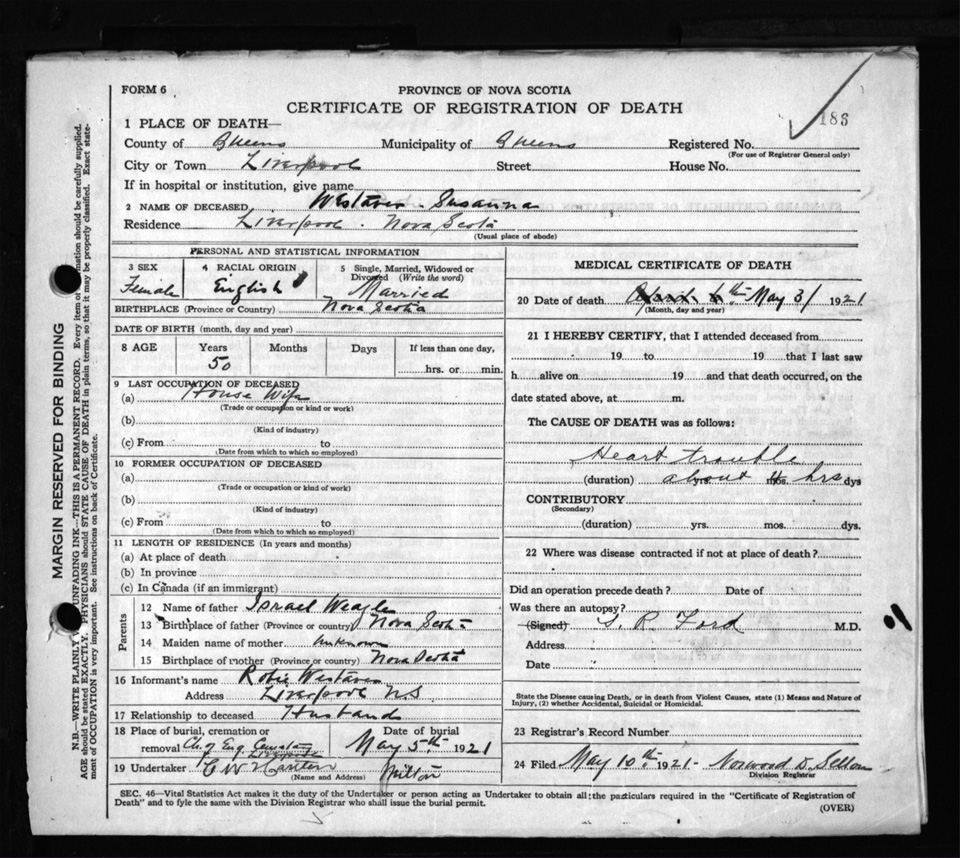 FORM 6
PROVINCE OF NOVA SCOTIA
CERTIFICATE OF REGISTRATION OF DEATH
186
1 PLACE OF DEATH—
County of Queens Municipality of Queens Registered No.
(For use of Registrar General only)
City or Town Liverpool Street House No.
If in hospital or institution, give name
2 NAME OF DECEASED Westaver Susanna
Residence Liverpool Nova Scotia
(Usual place of abode)
PERSONAL AND STATISTICAL INFORMATION
3 SEX Female
4 RACIAL ORIGIN English
5 Single, Married, Widowed or Divorced (Write the word) Married
BIRTHPLACE (Province or Country) Nova Scotia
DATE OF BIRTH (month, day and year)
8 AGE Years 50 Months Days If less than one day, hrs. or min.
9 LAST OCCUPATION OF DECEASED
(a) House Wife
(Trade or occupation or kind or work)
(b)
(Kind of industry)
(c) From to
(Date from which to which so employed)
10 FORMER OCCUPATION OF DECEASED
(a)
(Trade or occupation or kind of work)
(b)
(Kind of industry)
(c) From to
(Date from which to which so employed)
11 LENGTH OF RESIDENCE (In years and months)
(a) At place of death
(b) In province
(c) In Canada (if an immigrant)
Parents
12 Name of father Israel Weagle
13 Birthplace of father (Province or country) Nova Scotia
14 Maiden name of mother unknown
15 Birthplace of mother (Province or country) Nova Scotia
16 Informant's name Robie Westaver
Address Liverpool N.S.
17 Relationship to deceased Husband
18 Place of burial, cremation or removal Ch of Eng Cemetery Liverpool
Date of burial May 5th 1921
19 Undertaker C W
(Name and Address) Milton
MEDICAL CERTIFICATE OF DEATH
20 Date of death April 4th May 3/ 1921
(Month, day and year)
21 I HEREBY CERTIFY, that I attended deceased from
19 to 19 that I last saw
h alive on 19 and that death occurred, on the
date stated above, at m.
The CAUSE OF DEATH was as follows:
Heart trouble
(duration) about 4 hrs yrs. mos. dys
CONTRIBUTORY
(Secondary)
(duration) yrs. mos. dys.
22 Where was disease contracted if not at place of death?
Did an operation precede death? Date of
Was there an autopsy?
(Signed) G. R. Ford M.D.
Address
Date
State the Disease causing Death, or in death from Violent Causes, state (1) Means and Nature of
Injury, (2) whether Accidental, Suicidal or Homicidal.
23 Registrar's Record Number
24 Filed May 10th 1921 Norwood D.
Division Registrar
SEC. 46—Vital Statistics Act makes it the duty of the Undertaker or person acting as Undertaker to obtain all the particulars required in the "Certificate of Registration of
Death" and to fyle the same with the Division Registrar who shall issue the burial permit.
(OVER)
MARGIN RESERVED FOR BINDING
N.B.—WRITE PLAINLY UNFADING INK—THIS IS A PERMANENT RECORD. Every item of information should be carefully supplied.
AGE should be stated EXACTLY. PHYSICIANS should STATE CAUSE OF DEATH in plain terms, so that it may be properly classified. Exact state-
ment of OCCUPATION is very important. See instructions on back of Certificate.